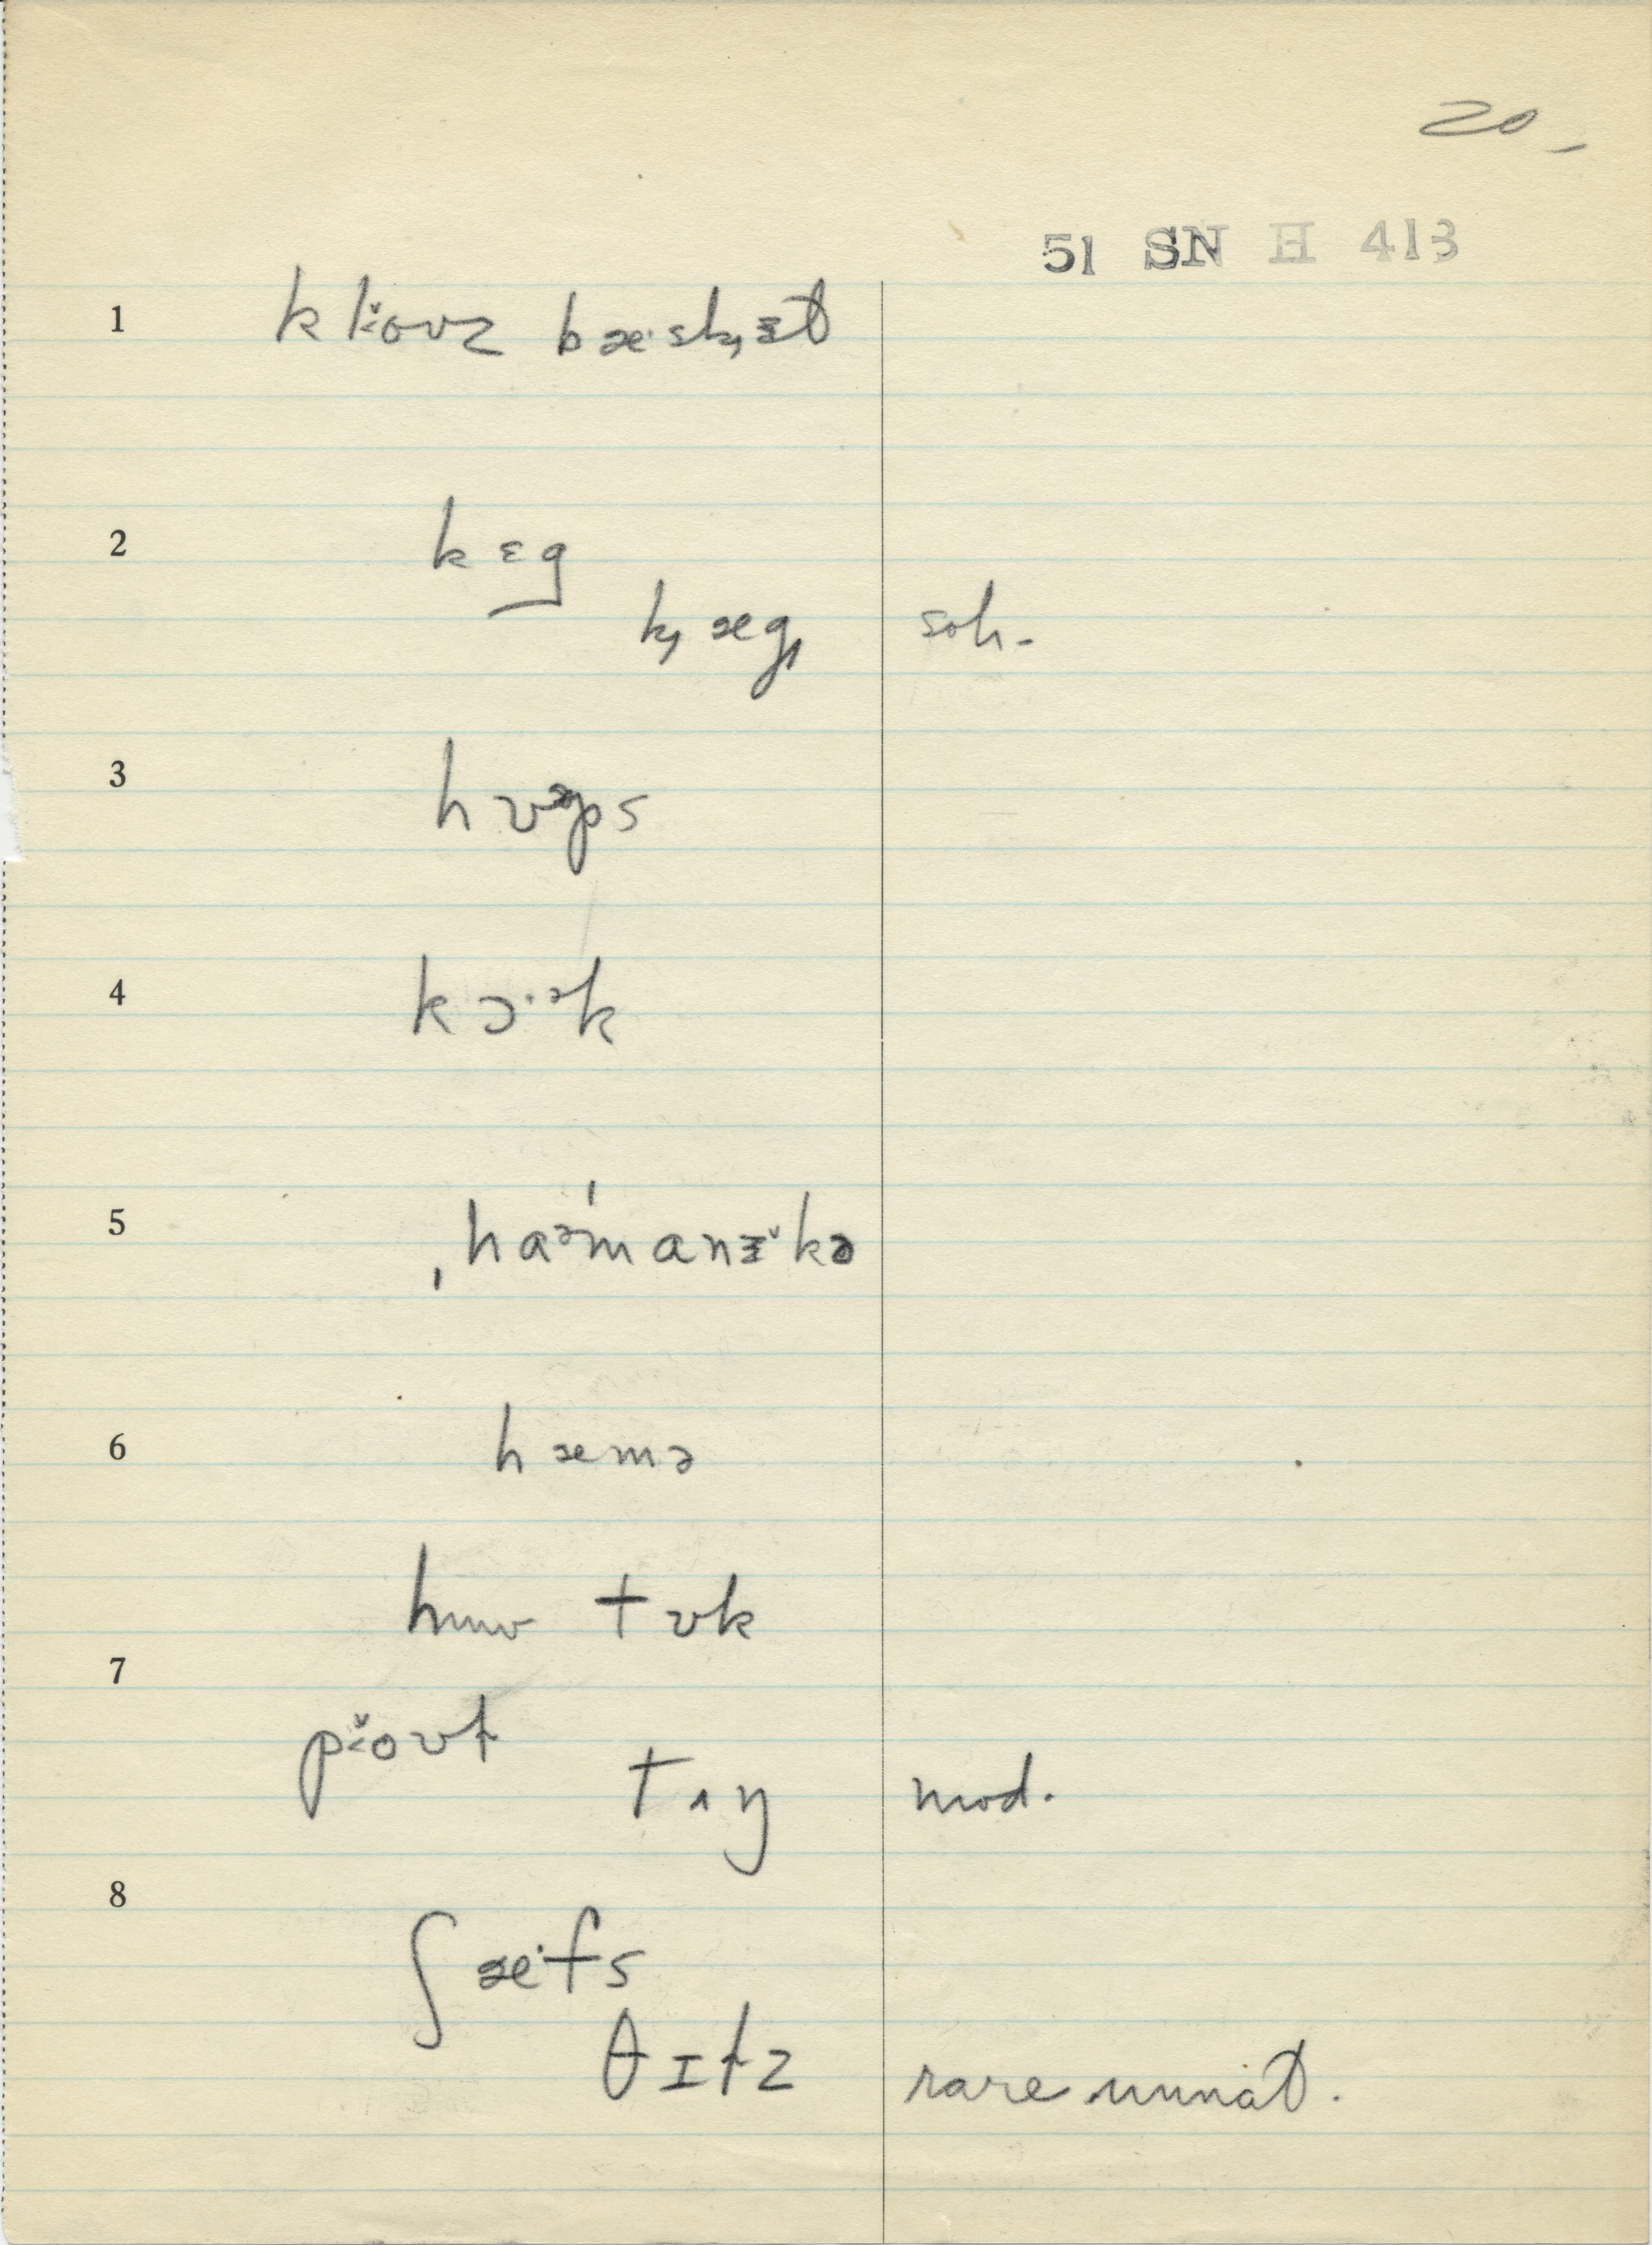 20 -
51 SN H 413
1 kl˂ovz bæ·sk̡ᵻt
2 kɛg
k̡æg̡ soh-
3 hʊᵊps
4 kɔ·ᵊk
5 ˌhaᵊˈmanᵻ̆kə
6 hæmə
hʊk
7
p˂ovt
mod.
8
ʃæ·fs
θɪłz rare unnat.